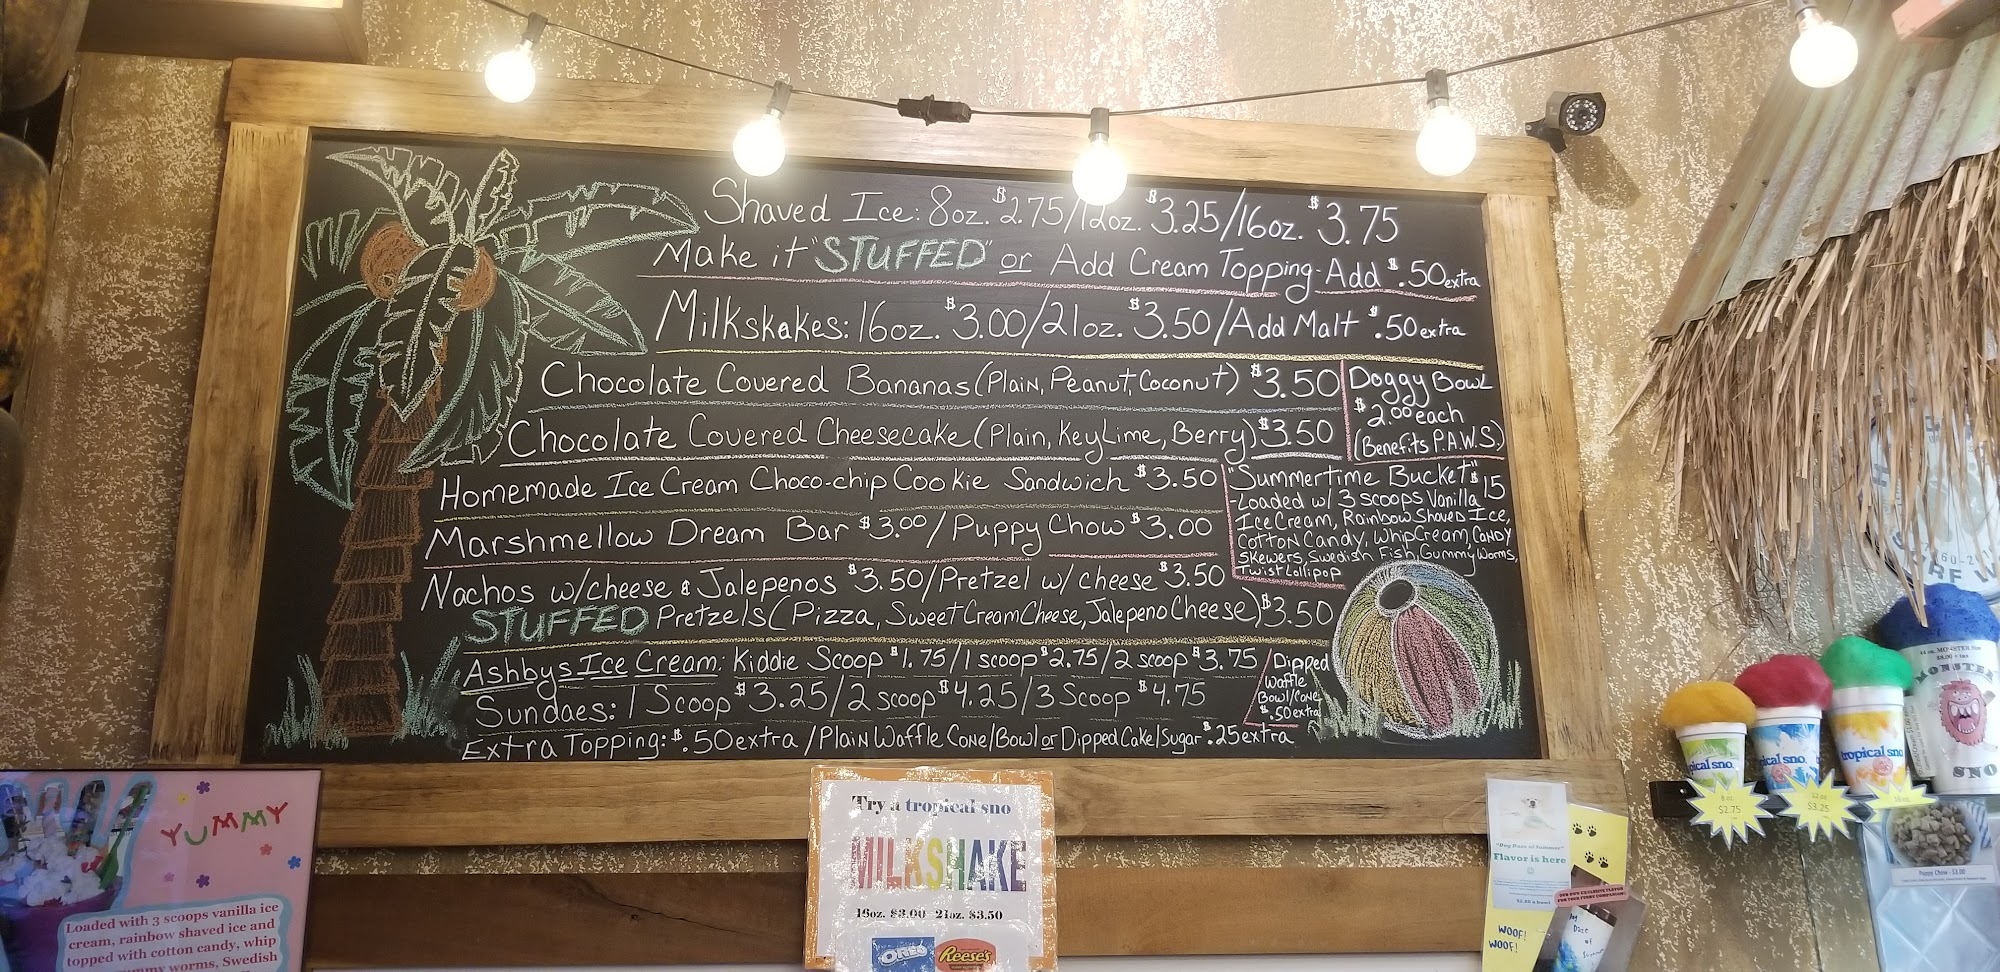 Shaved Ice: 8oz. $2.75/12oz. $3.25/16oz. $3.75
Make it "STUFFED" or Add Cream Topping-Add $.50 extra
Milkskakes: 16oz. $3.00/21oz. $3.50/Add Malt $.50 extra
Chocolate Covered Bananas (Plain, Peanut, Coconut) $3.50
Chocolate Covered Cheesecake (Plain, Key Lime, Berry) $3.50
Homemade Ice Cream Choco-chip Cookie Sandwich $3.50
Marshmellow Dream Bar $3.00/Puppy Chow $3.00
Nachos w/cheese & Jalepenos $3.50/Pretzel w/ cheese $3.50
STUFFED Pretzels (Pizza, Sweet Cream Cheese, Jalepeno Cheese) $3.50
Doggy Bowl
$2.00 each
(Benefits P.A.W.S.)
"Summertime Bucket" $15
-Loaded w/ 3 scoops Vanilla
Ice Cream, Rainbow Shaved Ice,
Cotton Candy, Whip Cream, Candy
Skewers, Swedish Fish, Gummy Worms,
Twist Lollipop
Ashbys Ice Cream: Kiddie Scoop $1.75/1 scoop $2.75/2 scoop $3.75
Sundaes: 1 Scoop $3.25/2 scoop $4.25/3 Scoop $4.75
Dipped
Waffle
Bowl/Cone
$.50 extra
Extra Topping: $.50 extra/Plain Waffle Cone/Bowl or Dipped Cake/Sugar $.25 extra
YUMMY
Loaded with 3 scoops vanilla ice
cream, rainbow shaved ice and
topped with cotton candy, whip
gummy worms, Swedish
Try a tropical sno
MILKSHAKE
16oz. $3.00 21oz. $3.50
OREO
Reese's
"Dog Daze of Summer"
Flavor is here
$2.00 a bowl
WOOF!
WOOF!
OUR OWN EXCLUSIVE FLAVOR
FOR YOUR FURRY COMPANION!
MONSTER
SNO
pical sno.
pical sno.
tropical sno
8 oz
$2.75
12 oz
$3.25
16 oz.
Puppy Chow - $3.00